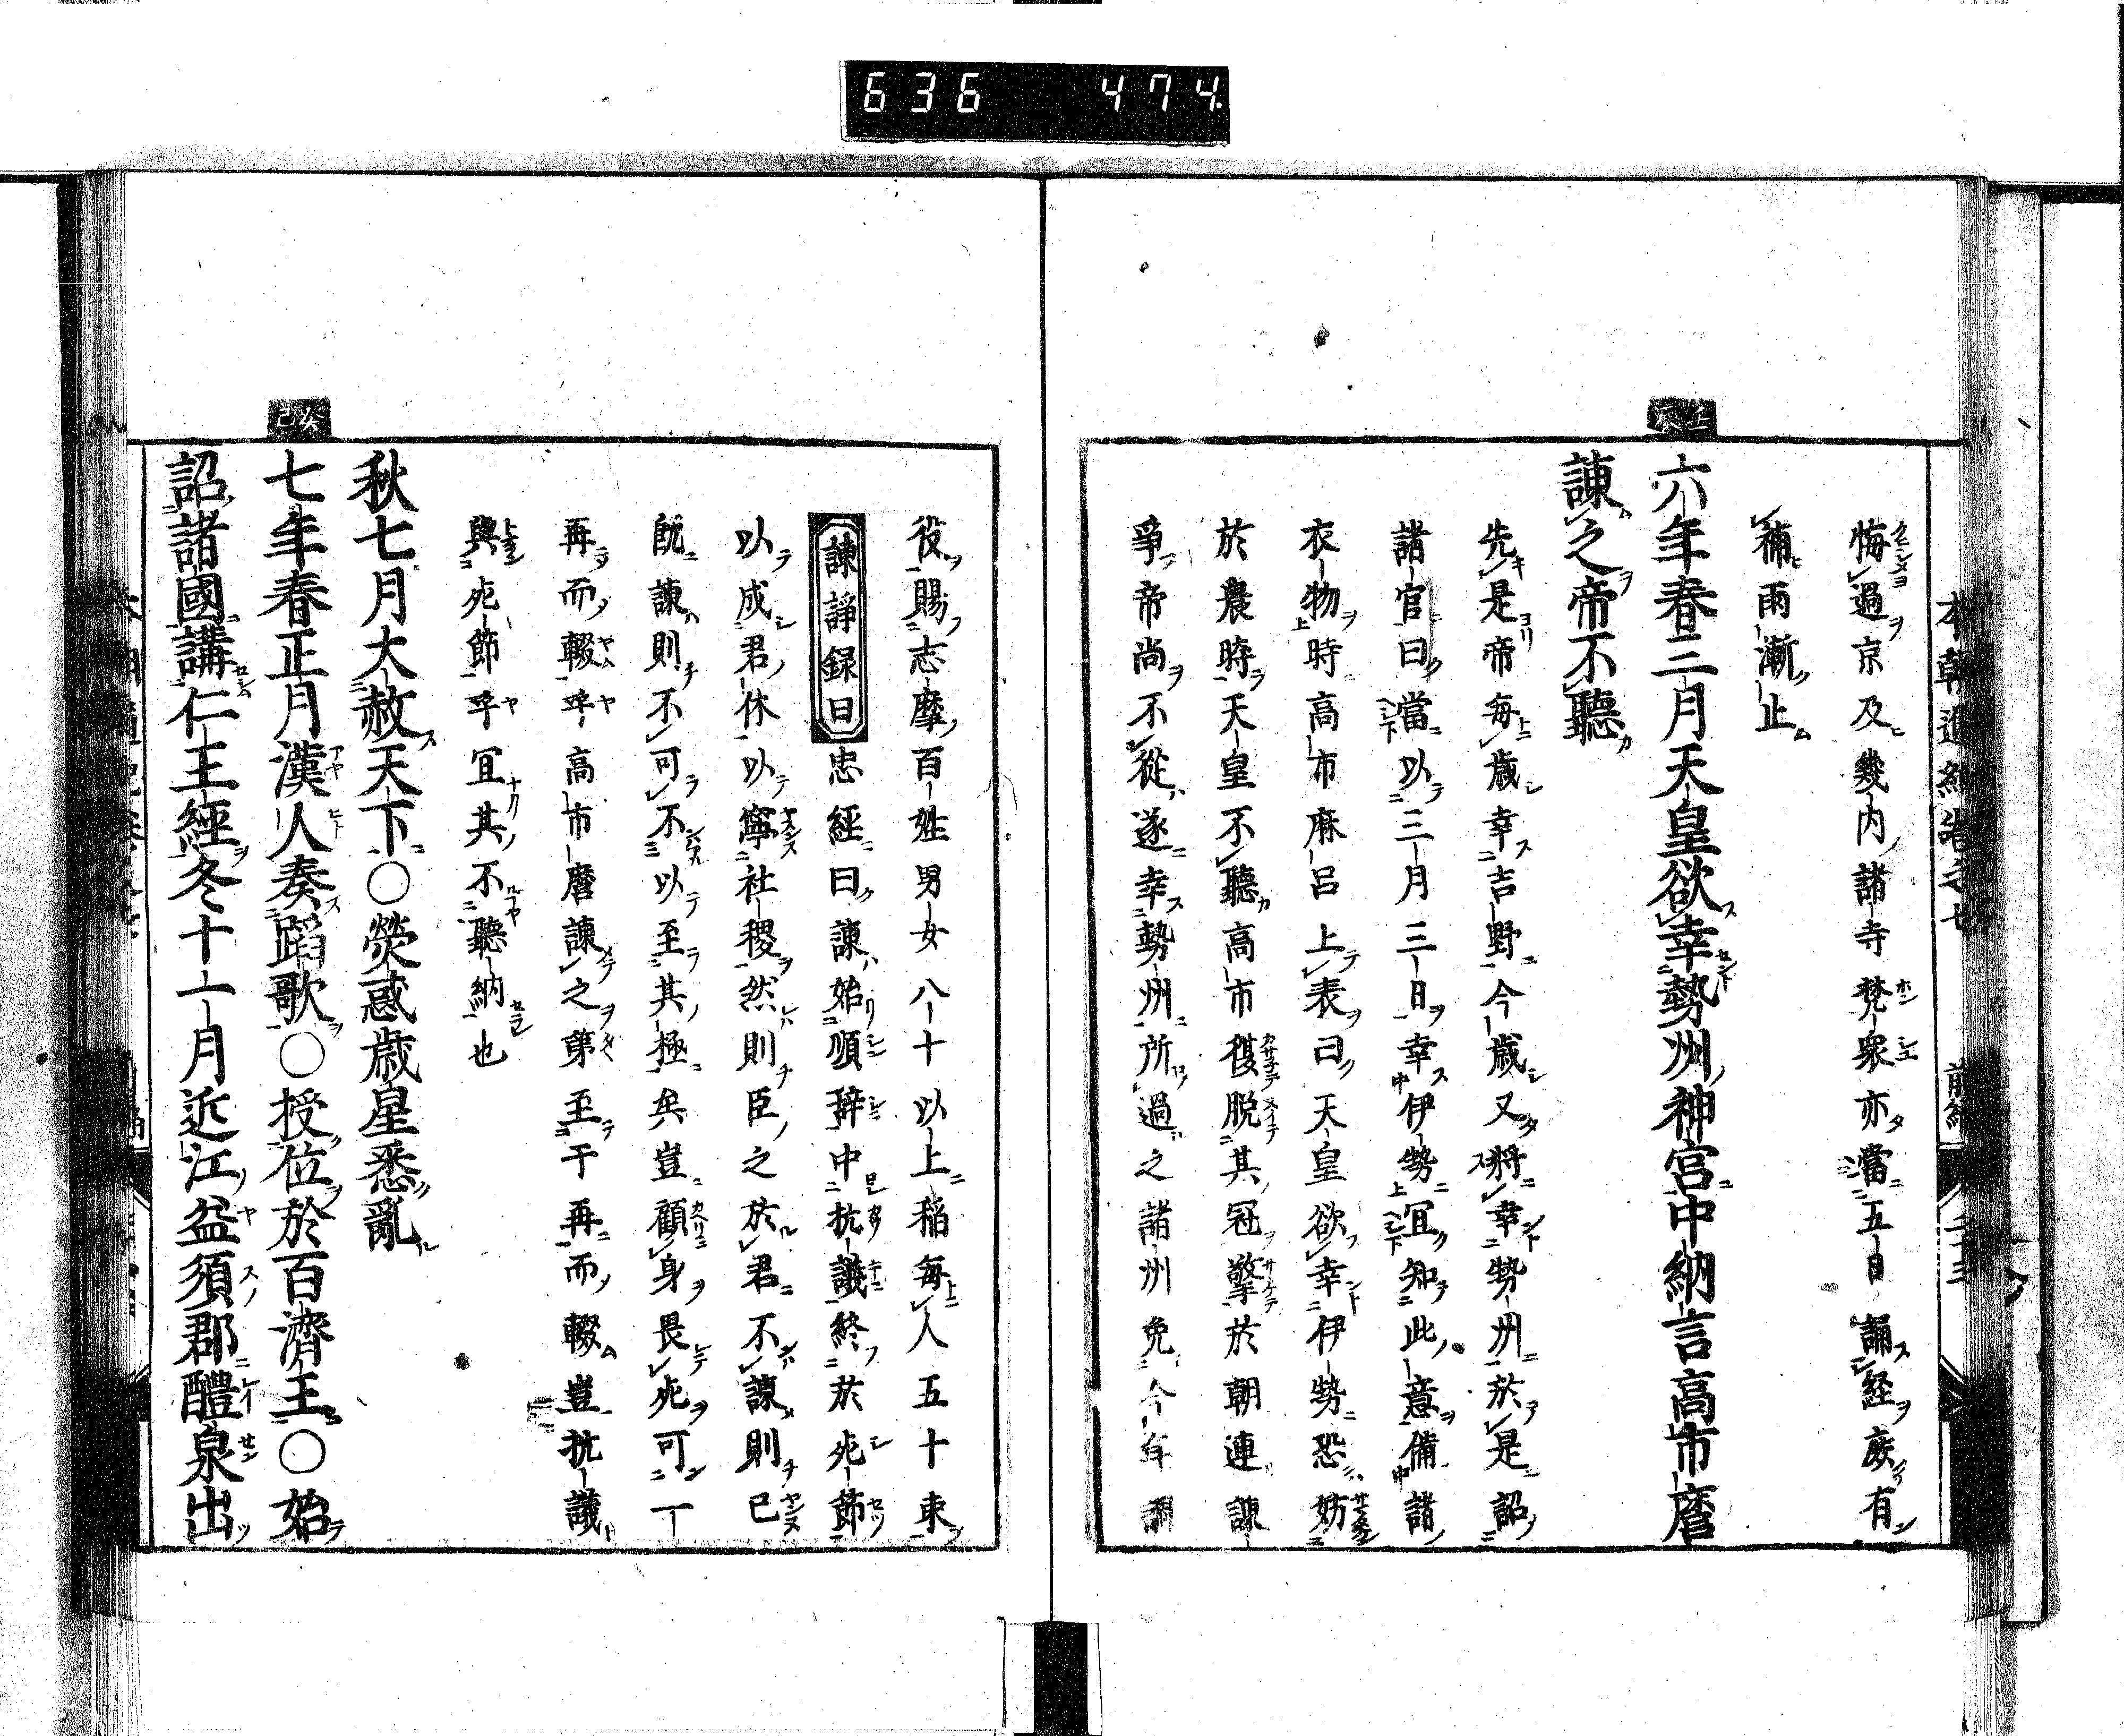 636 474
本朝通紀卷之七 前編 二十三
悔過京及畿内諸寺梵衆亦當五日誦経庶有
補雨漸止
壬辰
六年春三月天皇欲幸勢州神宮中納言高市麿
諌之帝不聽
先是帝毎歳幸吉野今歳又將幸勢州於是詔
諸官曰當以三月三日幸伊勢宜知此意備諸
衣物時高市麻呂上表曰天皇欲幸伊勢恐妨
於農時天皇不聽高市復脱其冠擎於朝連諌
爭帝尚不從遂幸勢州所過之諸州免今年調
役賜志摩百姓男女八十以上稲毎人五十束
諌諍録曰忠經曰諌始順辭中抗議終於死節
以成君休以寧社稷然則臣之於君不諌則已
既諌則不可不以至其極矣豈顧身畏死可一
再而輟乎高市麿諌之第至于再而輟豈抗議
與死節乎宜其不聽納也
秋七月大赦天下〇熒惑歳星悉亂
癸巳
七年春正月漢人奏蹈歌〇授位於百濟王〇始
詔諸國講仁王經冬十一月近江益須郡醴泉出